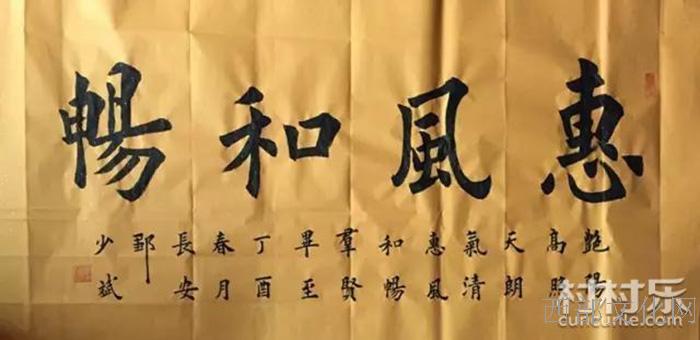 惠風和暢
艷陽
高照
天朗
氣清
惠風
和暢
羣賢
畢至
丁酉
春月
長安
少斌
村村乐
cuncunle.com